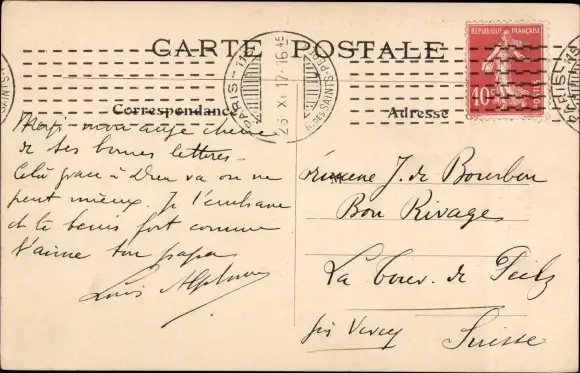 CARTE POSTALE
Correspondance
Adresse
REPUBLIQUE FRANÇAISE
10c
POSTES
PARIS-110
16 45
26 XI 17
R. DES SAINTS-PÈRES
Merci mon ange chérie
de tes bonnes lettres -
Celui grace à Dieu va on ne
peut mieux. Je t'embrasse
et te bénis fort comme
t'aime ton papa
Louis Alphonse
J. de Bourbon
Bon Rivage
La Tour de Peilz
près Vevey
Suisse